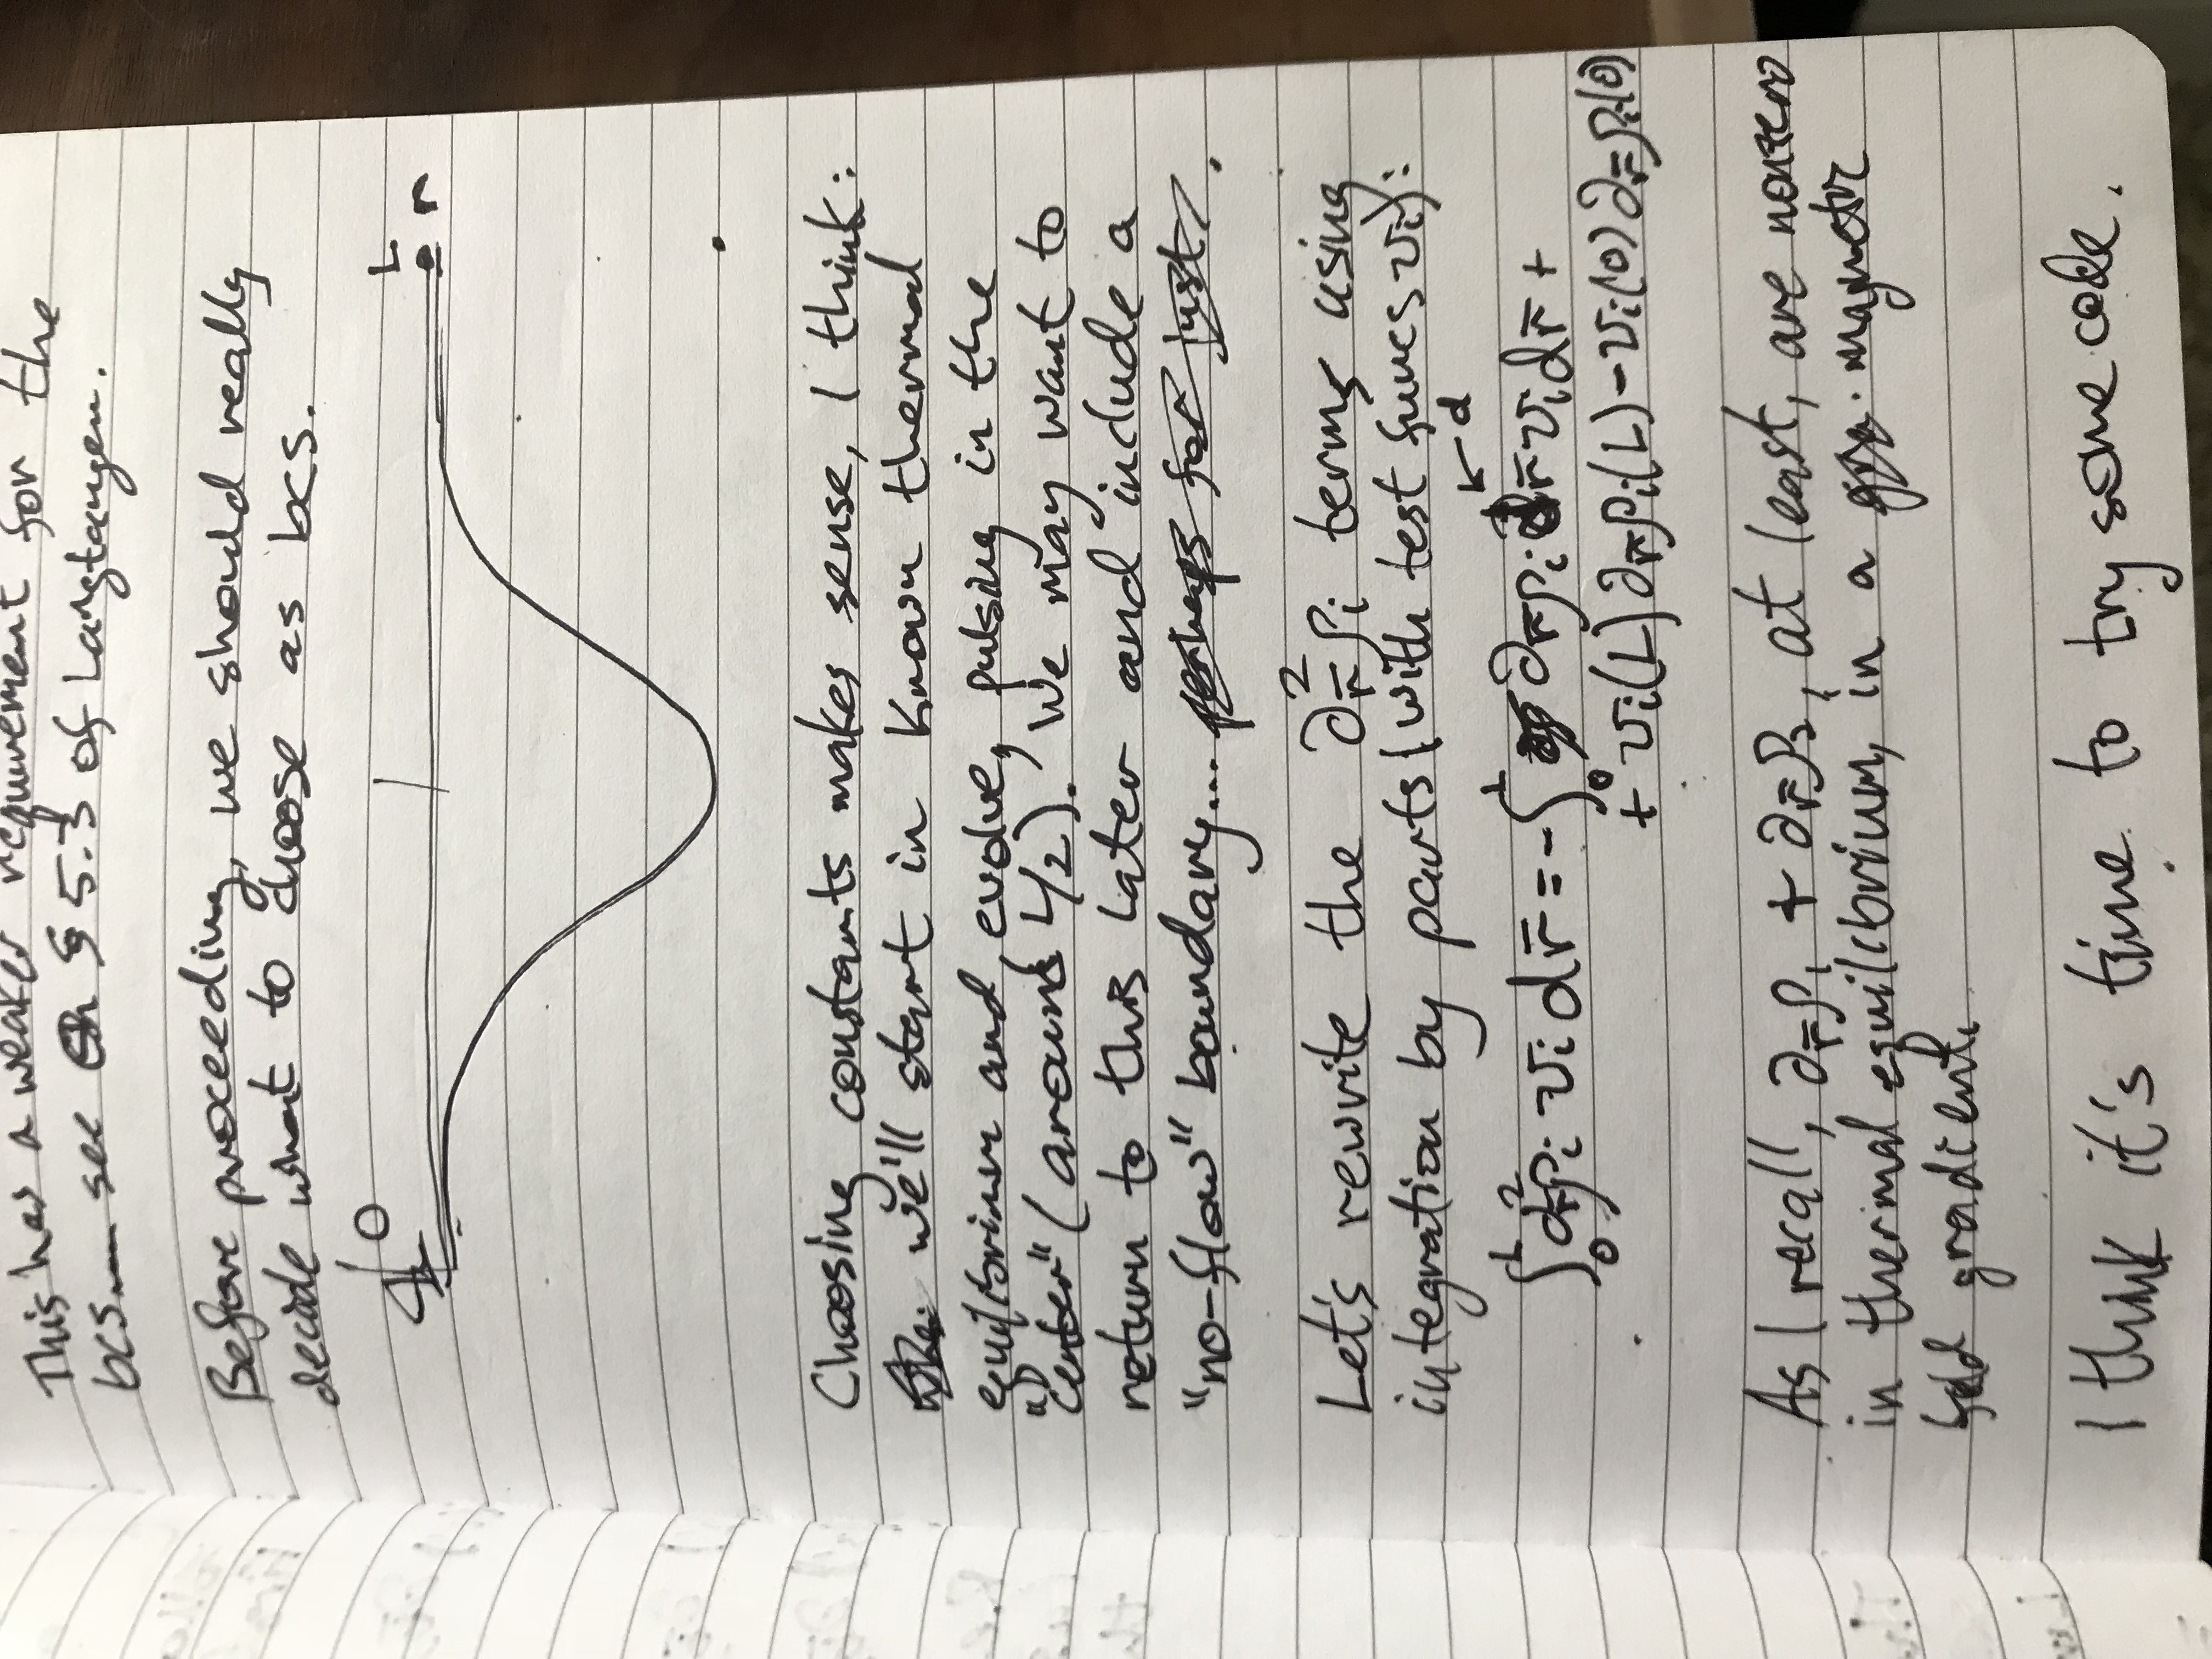 This has a weaker requirement for the
bcs see § 5.3 of Langtangen.
Before proceeding, we should really
decide what to choose as bcs.
0
L
r
Choosing constants makes sense, I think:
we'll start in known thermal
equilibrium and evolve, pulsing in the
"center" (around L/2). We may want to
return to this later and include a
"no-flow" boundary... perhaps for just
Let's rewrite the ∂²_r̄ ρ_i terms using
integration by parts (with test funcs v_i):
← d
∫₀ᴸ ∂²_r̄ ρ_i v_i dr̄ = - ∫₀ᴸ ∂_r̄ ρ_i d_r̄ v_i dr̄ +
+ v_i(L) ∂_r̄ ρ_i(L) - v_i(0) ∂_r̄ ρ_i(0)
As I recall, ∂_r̄ ρ₁ + ∂_r̄ ρ₂, at least, are nonzero
in thermal equilibrium, in a magnetic
field gradient.
I think it's time to try some code.